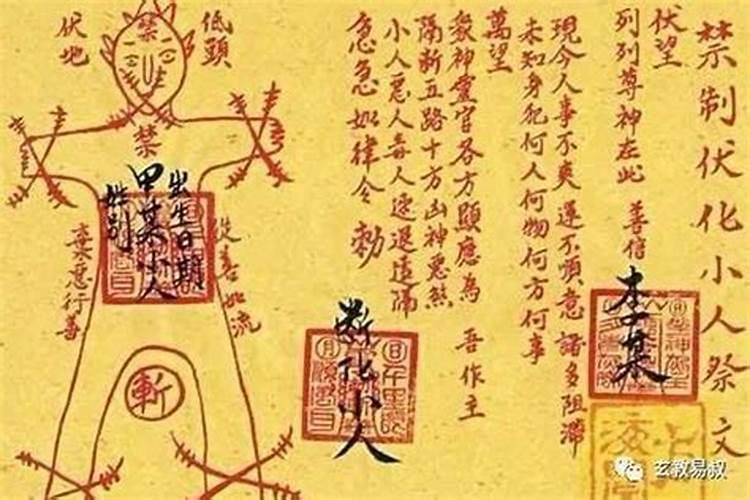 禁制伏化小人祭文
伏望
列列尊神在此 善信
李某
現今人事不爽 運不順意 諸多阻滯
未知身犯何人何物何方何事
萬望
眾神靈官各方顯應為 吾作主
隔斷五路十方凶神惡煞
小人惡人毒人速退遠隔
急急如律令 勅
斷化小人
低頭
伏地
禁
禁
出生日期
甲某小人
姓列
棄惡行善
從善如流
斬
玄教易叔